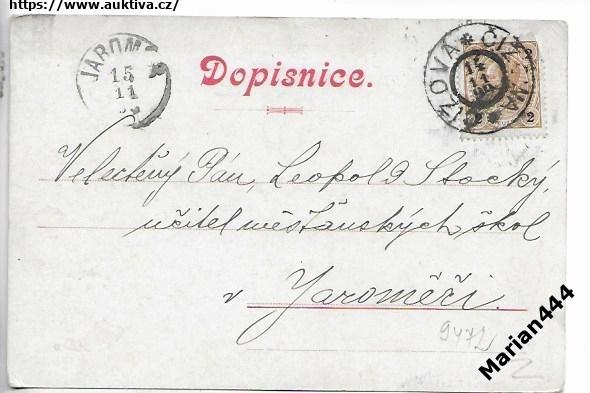 https://www.auktiva.cz/
JAROMĚŘ
15
11
Dopisnice.
ČÍZOVÁ * ČIZOVNA *
15
11
2
Velectěný Pán, Leopold Stocký,
učitel měšťanských škol
v Jaroměři.
9472
Marian444